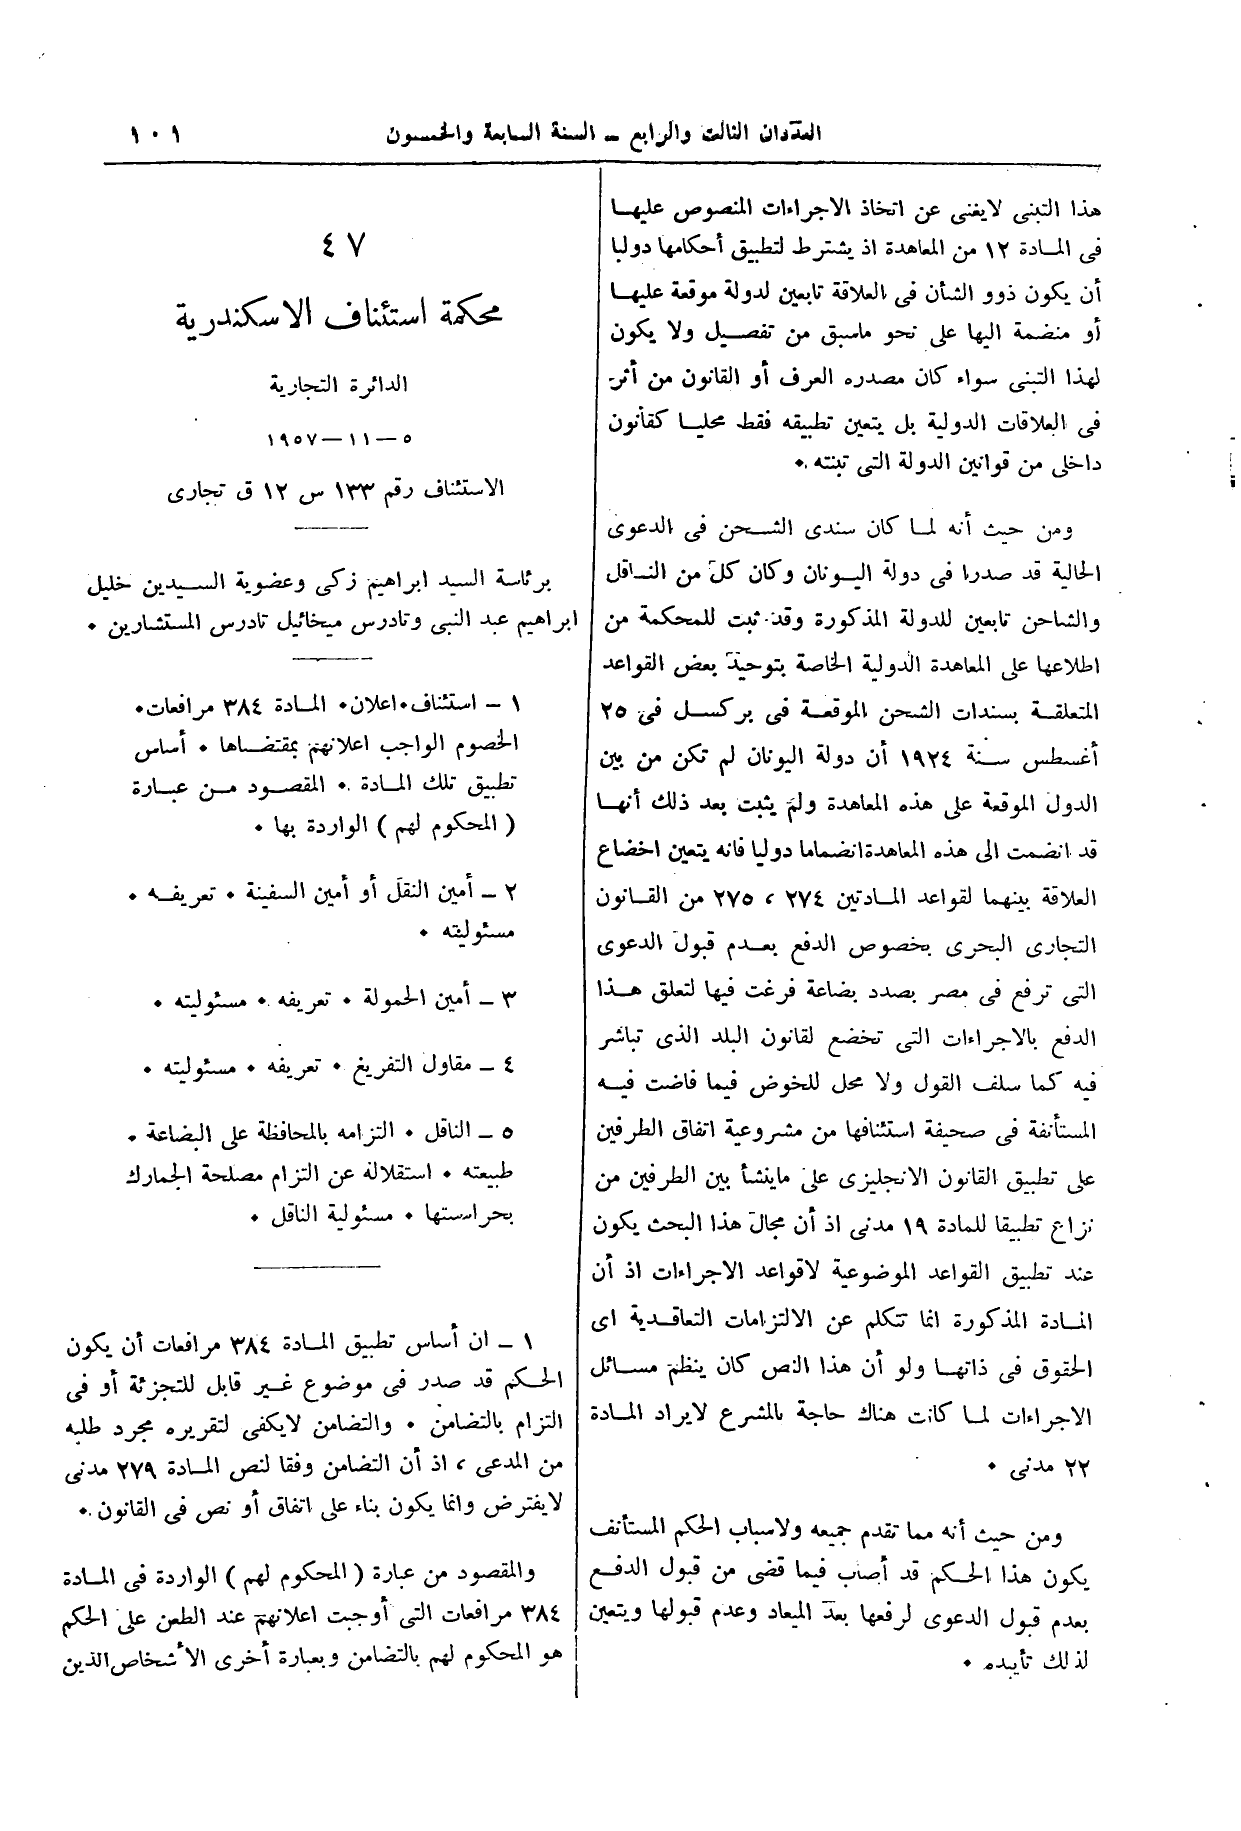 العددان الثالث والرابع – السنة السابعة والخمسون
١٠١
هذا التبنى لايغنى عن اتخاذ الاجراءات المنصوص عليها
فى المادة ١٢ من المعاهدة اذ يشترط لتطبيق أحكامها دوليا
أن يكون ذوو الشأن فى العلاقة تابعين لدولة موقعة عليها
أو منضمة اليها على نحو ماسبق من تفصيل ولا يكون
لهذا التبنى سواء كان مصدره العرف أو القانون من أثر
فى العلاقات الدولية بل يتعين تطبيقه فقط محليا كقانون
داخلى من قوانين الدولة التى تبنته ٠
ومن حيث أنه لما كان سندى الشحن فى الدعوى
الحالية قد صدرا فى دولة اليونان وكان كل من الناقل
والشاحن تابعين للدولة المذكورة وقد ثبت للمحكمة من
اطلاعها على المعاهدة الدولية الخاصة بتوحيد بعض القواعد
المتعلقة بسندات الشحن الموقعة فى بركسل فى ٢٥
أغسطس سنة ١٩٢٤ أن دولة اليونان لم تكن من بين
الدول الموقعة على هذه المعاهدة ولم يثبت بعد ذلك أنها
قد انضمت الى هذه المعاهدة انضماما دوليا فانه يتعين اخضاع
العلاقة بينهما لقواعد المادتين ٢٧٤ ، ٢٧٥ من القانون
التجارى البحرى بخصوص الدفع بعدم قبول الدعوى
التى ترفع فى مصر بصدد بضاعة فرغت فيها لتعلق هذا
الدفع بالاجراءات التى تخضع لقانون البلد الذى تباشر
فيه كما سلف القول ولا محل للخوض فيما فاضت فيه
المستأنفة فى صحيفة استئنافها من مشروعية اتفاق الطرفين
على تطبيق القانون الانجليزى على ماينشأ بين الطرفين من
نزاع تطبيقا للمادة ١٩ مدنى اذ أن مجال هذا البحث يكون
عند تطبيق القواعد الموضوعية لاقواعد الاجراءات اذ أن
المادة المذكورة انما تتكلم عن الالتزامات التعاقدية اى
الحقوق فى ذاتها ولو أن هذا النص كان ينظم مسائل
الاجراءات لما كانت هناك حاجة بالمشرع لايراد المادة
٢٢ مدنى ٠
ومن حيث أنه مما تقدم جميعه ولاسباب الحكم المستأنف
يكون هذا الحكم قد أصاب فيما قضى من قبول الدفع
بعدم قبول الدعوى لرفعها بعد الميعاد وعدم قبولها ويتعين
لذلك تأييده ٠
٤٧
محكمة استئناف الاسكندرية
الدائرة التجارية
٥ – ١١ – ١٩٥٧
الاستئناف رقم ١٣٣ س ١٢ ق تجارى
برئاسة السيد ابراهيم زكى وعضوية السيدين خليل
ابراهيم عبد النبى وتادرس ميخائيل تادرس المستشارين ٠
١ – استئناف ٠ اعلان ٠ المادة ٣٨٤ مرافعات ٠
الخصوم الواجب اعلانهم بمقتضاها ٠ أساس
تطبيق تلك المادة ٠ المقصود من عبارة
( المحكوم لهم ) الواردة بها ٠
٢ – أمين النقل أو أمين السفينة ٠ تعريفه ٠
مسئوليته ٠
٣ – أمين الحمولة ٠ تعريفه ٠ مسئوليته ٠
٤ – مقاول التفريغ ٠ تعريفه ٠ مسئوليته ٠
٥ – الناقل ٠ التزامه بالمحافظة على البضاعة ٠
طبيعته ٠ استقلاله عن التزام مصلحة الجمارك
بحراستها ٠ مسئولية الناقل ٠
١ – ان أساس تطبيق المادة ٣٨٤ مرافعات أن يكون
الحكم قد صدر فى موضوع غير قابل للتجزئة أو فى
التزام بالتضامن ٠ والتضامن لايكفى لتقريره مجرد طلبه
من المدعى ، اذ أن التضامن وفقا لنص المادة ٢٧٩ مدنى
لايفترض وانما يكون بناء على اتفاق أو نص فى القانون ٠
والمقصود من عبارة ( المحكوم لهم ) الواردة فى المادة
٣٨٤ مرافعات التى أوجبت اعلانهم عند الطعن على الحكم
هو المحكوم لهم بالتضامن وبعبارة أخرى الأشخاص الذين